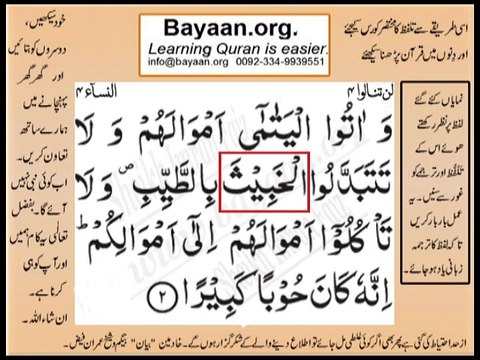 Bayaan.org.
Learning Quran is easier.
info@bayaan.org 0092-334-9939551
اسی طریقے سے تلفظ کا مختصر کورس کیجئے
اور دِنوں میں قرآن پڑھنا سیکھئے
خود سیکھیں،
دوسروں کو بتائیں
اور گھر گھر
پہنچانے میں
ہمارے ساتھ
تعاون کریں۔
اب کوئی نبی نہیں
آئے گا۔ بفضل
تعالی یہ کام ہمیں
اور آپ کو ہی
کرنا ہے۔
ان شاء اللہ۔
لن تنالوا ۴
النساء ۴
وَ اٰتُوا الْيَتٰمٰٓى اَمْوَالَهُمْ وَ لَا
تَتَبَدَّلُوا الْخَبِيْثَ بِالطَّيِّبِ ۪ وَ لَا
تَاْكُلُوْٓا اَمْوَالَهُمْ اِلٰٓى اَمْوَالِكُمْ ؕ
اِنَّهٗ كَانَ حُوْبًا كَبِيْرًا ﴿۲﴾
نمایاں کئے گئے
لفظ پر نظر رکھتے
ہوئے اس کے
تلفُّظ اور ترجمے کو
غور سے سنیں۔ یہ
عمل بار بار کریں
تا کہ لفظ کا ترجمہ
زبانی یاد ہو جائے۔
از حد احتیاط کی گئی ہے پھر بھی اگر کوئی غلطی مل جائے تو اطلاع دینے والے کے شکر گزار ہوں گے۔ خادمین "بیان" بیگم و شیخ عمران فیض۔